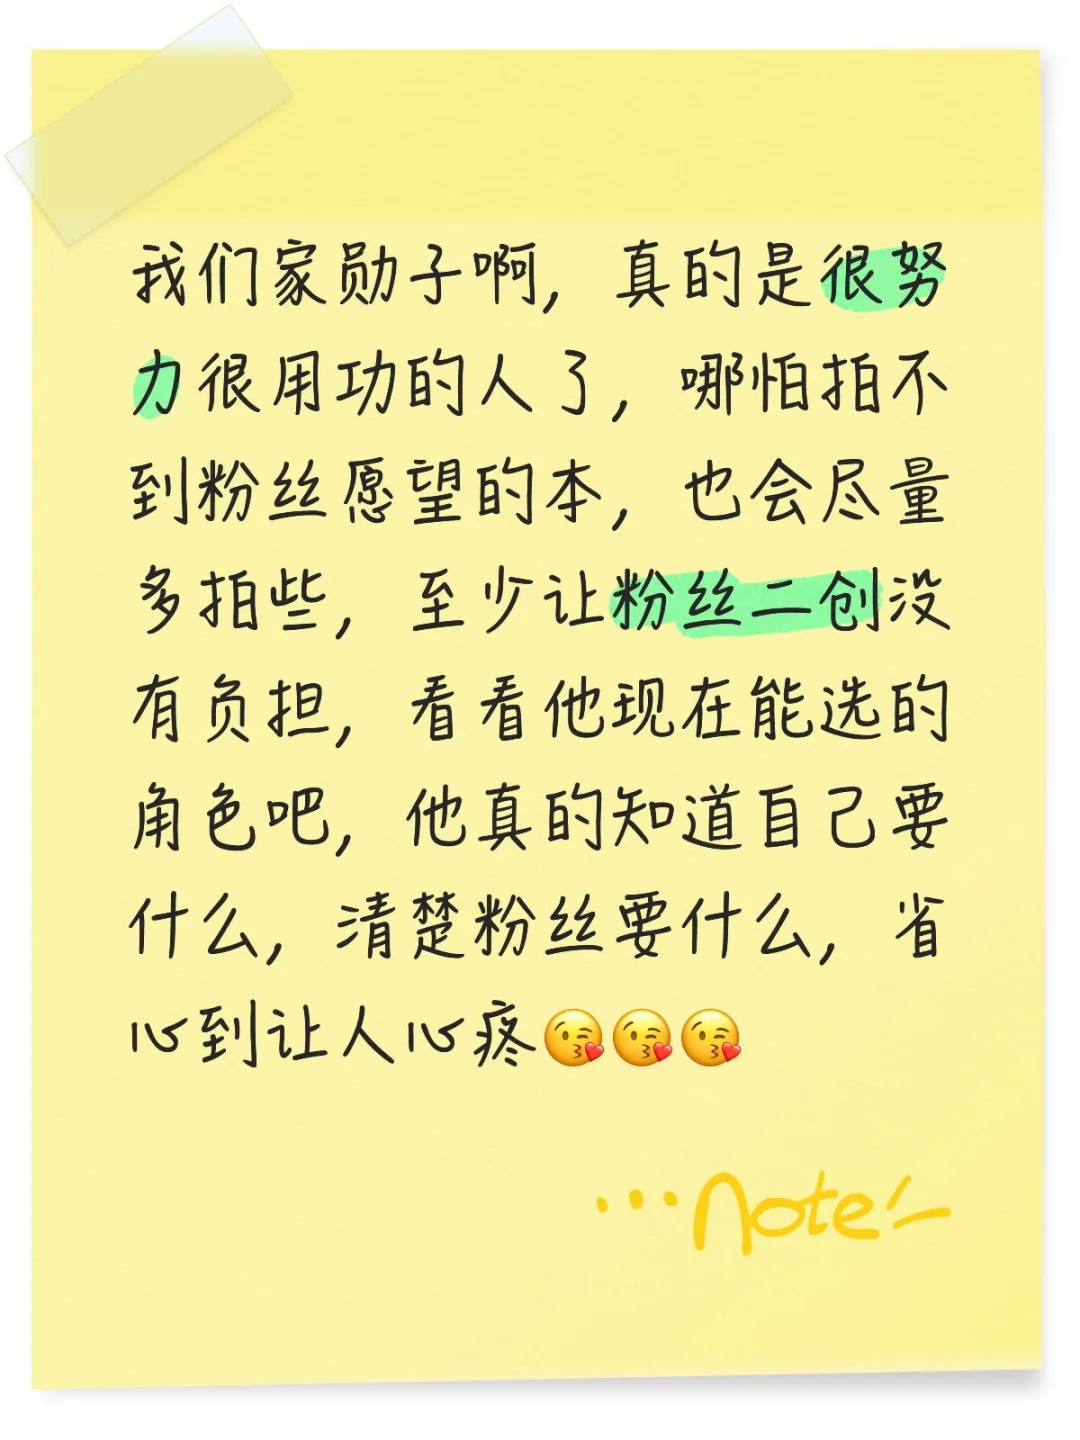 我们家勋子啊，真的是很努
力很用功的人了，哪怕拍不
到粉丝愿望的本，也会尽量
多拍些，至少让粉丝二创没
有负担，看看他现在能选的
角色吧，他真的知道自己要
什么，清楚粉丝要什么，省
心到让人心疼😘😘😘
...note